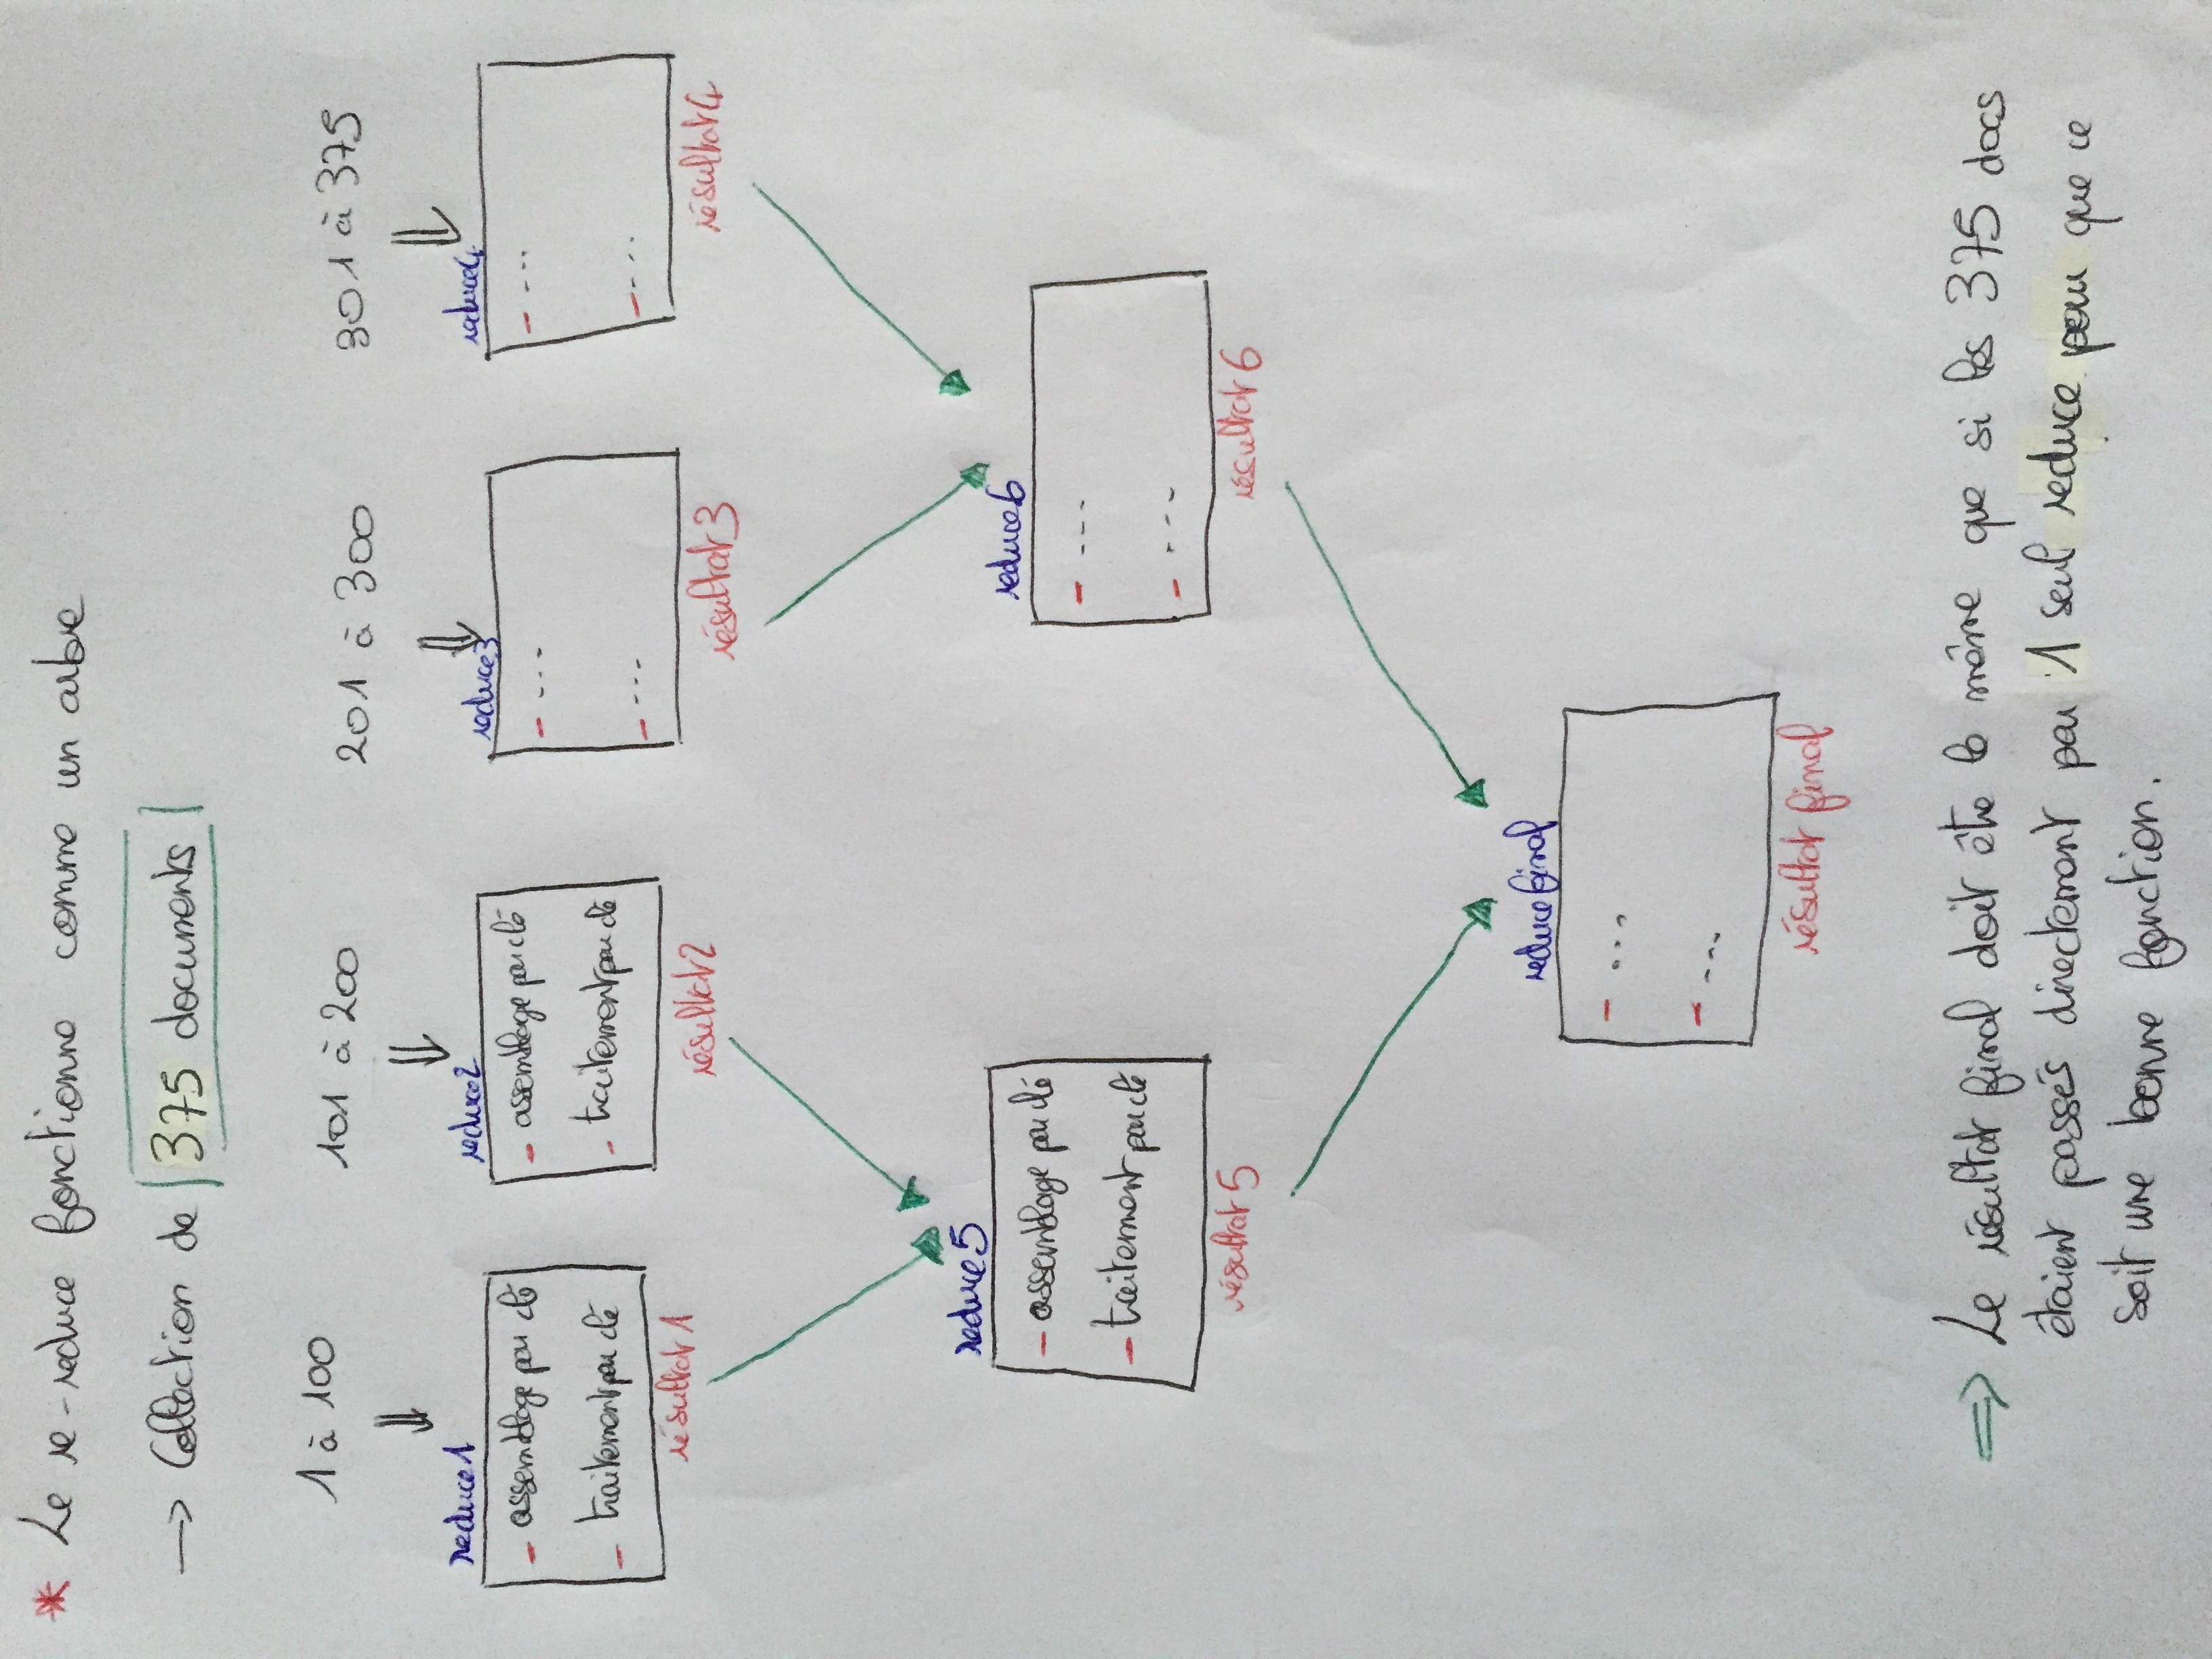 * Le re-reduce fonctionne comme un arbre
→ Collection de 375 documents
1 à 100
101 à 200
201 à 300
301 à 375
reduce1
reduce2
reduce3
reduce4
- assemblage par clé
- traitement par clé
- assemblage par clé
- traitement par clé
- ---
- ---
- ---
- ---
résultat 1
résultat 2
résultat 3
résultat 4
reduce5
reduce6
- assemblage par clé
- traitement par clé
- ---
- ---
résultat 5
résultat 6
reduce final
- ...
- ---
résultat final
⇒ Le résultat final doit être le même que si les 375 docs
étaient passés directement par 1 seul reduce pour que ce
soit une bonne fonction.